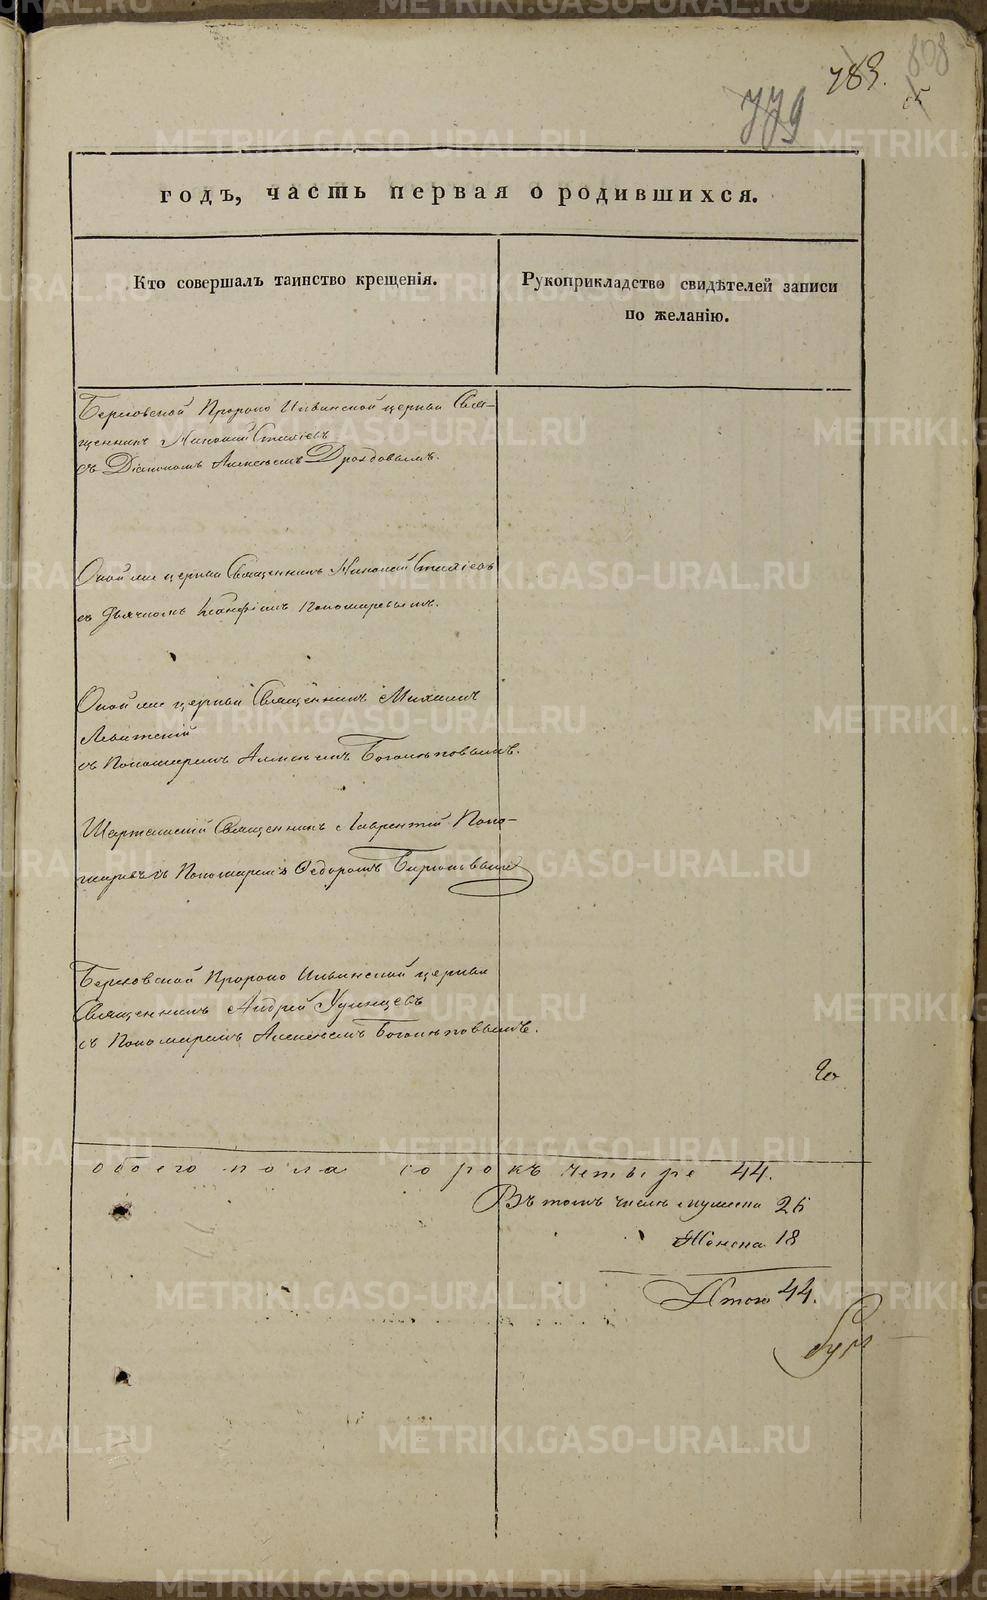 783.
808
779
годъ, часть первая о родившихся.
Кто совершалъ таинство крещенія.
Рукоприкладство свидѣтелей записи
по желанію.
Пророко Ильинской церкви Свя-
щенникъ Николай
съ Діакономъ Алексѣемъ Дроздовымъ.
Оной же церкви Священникъ Николай
съ Дьячкомъ Пономаревымъ.
Оной же церкви Священникъ Михаилъ
Левитскій
съ Пономаремъ Алексѣемъ
Шарташскій Священникъ Лаврентій Поно-
маревъ съ Пономаремъ Ѳедоромъ
Пророко Ильинской церкви
Священникъ Андрей Удинцевъ
съ Пономаремъ Алексѣемъ
обоего пола сорокъ четыре 44.
Въ томъ числѣ мужеска 26
Женска 18
Итого 44.
METRIKI.GASO-URAL.RU